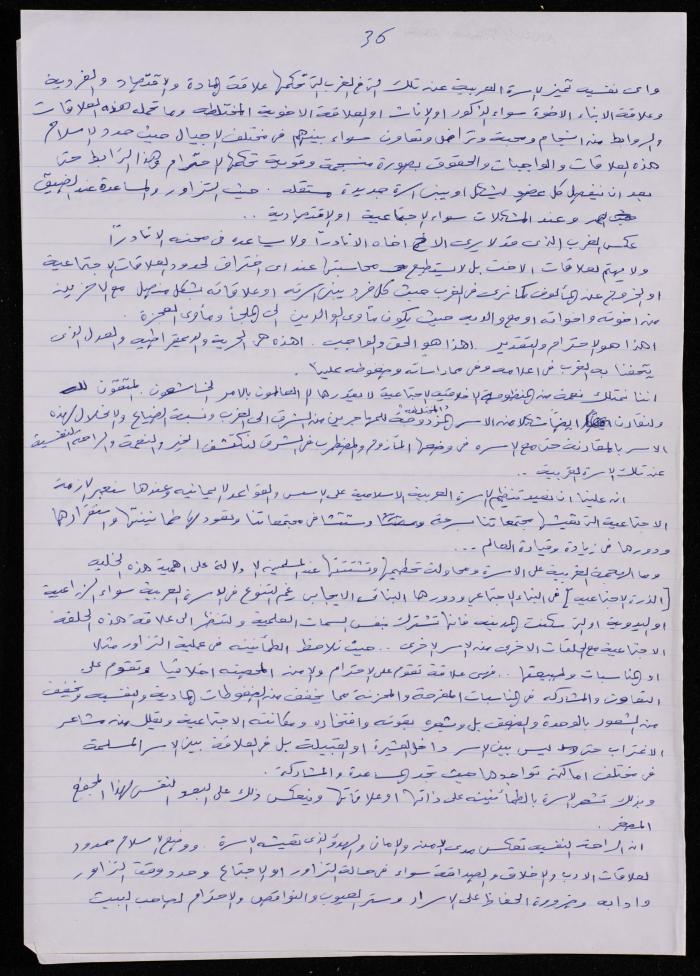 36
وأي نفسية تميز الأسرة العربية عن تلك الأسر في الغرب التي تحكمها علاقة المادة والاقتصاد والفردية
وعلاقة الأبناء الاخوة سواء الذكور او الاناث او العلاقة الاخوية المختلطة وما تحمله هذه العلاقات
والروابط من انسجام ومحبة وتراحم وتعاون سواء بينهم في مختلف الاجيال حيث حدد الاسلام
هذه العلاقات والواجبات والحقوق بصورة منسجمة وقوية تحكمها الاحترام وهذا الترابط حتى
بعد ان ينفصل كل عضو ليشكل او يبني اسرة جديدة مستقله . حيث التزاور والمساعدة عند الضيق
وعند المشكلات سواء الاجتماعية او الاقتصادية ..
عكس الغرب الذي قد لا يرى الاخ اخاه الا نادراً ولا يساعده في محنته الا نادراً
ولا يهتم لعلاقات الاخت بل لا يستطيع محاسبتها عند اي اختراق لحدود العلاقات الاجتماعية
او الخروج عن المألوف كما نرى في الغرب حيث كل فرد يبني اسرته او علاقاته بشكل منفصل مع الاخرين
من اخوته واخواته او مع والديه حيث يكون مأوى الوالدين الى الملجأ ومأوى العجزة .
اهذا هو الاحترام والتقدير . اهذا هو الحق والواجب . اهذه هي الحرية والديمقراطية والعدل الذي
يتحفنا به الغرب في اعلامه وفي ممارساته وضغوطه علينا .
اننا نمتلك نعمة من المنظومة الاخلاقية الاجتماعية لا يقدرها الا العالمون بالامر الخاشعون . المتقون لله
ولنقارن ايضاً شكلا من الاسر المزدوجة المختلطة للمهاجرين من الشرق الى الغرب ونسبة الضياع والانحلال لهذه
الاسر بالمقارنة حتى مع الاسره في وضعها المتأزم والمضطرب في الشرق لنكتشف الخير والنعمة والراحة النفسية
عن تلك الاسرة الغربية ..
ان علينا ان نعيد تنظيم الاسرة العربية الاسلامية على الاسس والقواعد الايمانيه وعندها سنعبر الازمة
الاجتماعية التي تعيشها مجتمعاتنا بسرعة وستشفى مجتمعاتنا وتعود لها طمأنينتها واستقرارها
ودورها في زيادة وقيادة العالم ...
وما الهجمة الغربية على الاسرة ومحاولة تحطيمها وتشتتها عند المسلمين الا دلالة على اهمية هذه الخلية
[الذرة الاجتماعية] في البناء الاجتماعي ودورها البنائي الايجابي رغم التنوع في الاسرة العربية سواء الزراعية
او البدوية او التي سكنت المدينه فانها تشترك بنفس السمات العلمية ولننظر الى علاقة هذه الحلقة
الاجتماعية مع الحلقات الاخرى من الاسر الاخرى .. حيث نلاحظ الطمأنينه في عملية التزاور مثلا
او المناسبات وطبيعتها .. فهي علاقة تقوم على الاحترام والامن المحصنه اخلاقيا وتقوم على
التعاون والمشاركه في المناسبات المفرحة والمحزنة مما يخفف من الضغوطات المادية والنفسية ويخفف
من الشعور بالوحدة والضعف بل ويشعره بقوته وافتخاره ومكانته الاجتماعية ويقلل من مشاعر
الاغتراب حتى ليس بين الاسر داخل العشيرة او القبيلة بل في العلاقة بين الاسر المسلمة
في مختلف اماكن تواجدها حيث تجد المساعدة والمشاركة .
وبذلك تشعر الاسرة بالطمأنينه على ذاتها او علاقاتها وينعكس ذلك على البعد النفسي لهذا المجتمع
المصغر .
ان الراحة النفسيه تعكس مدى الامن والامان والهدوء الذي تعيشه الاسرة . ووضع الاسلام حدود
لعلاقات الادب والاخلاق والصداقة سواء في حالة التزاور او الاجتماع وحدد وقت التزاور
وادابه وضرورة الحفاظ على الاسرار وستر العيوب والنواقص والاحترام لصاحب البيت